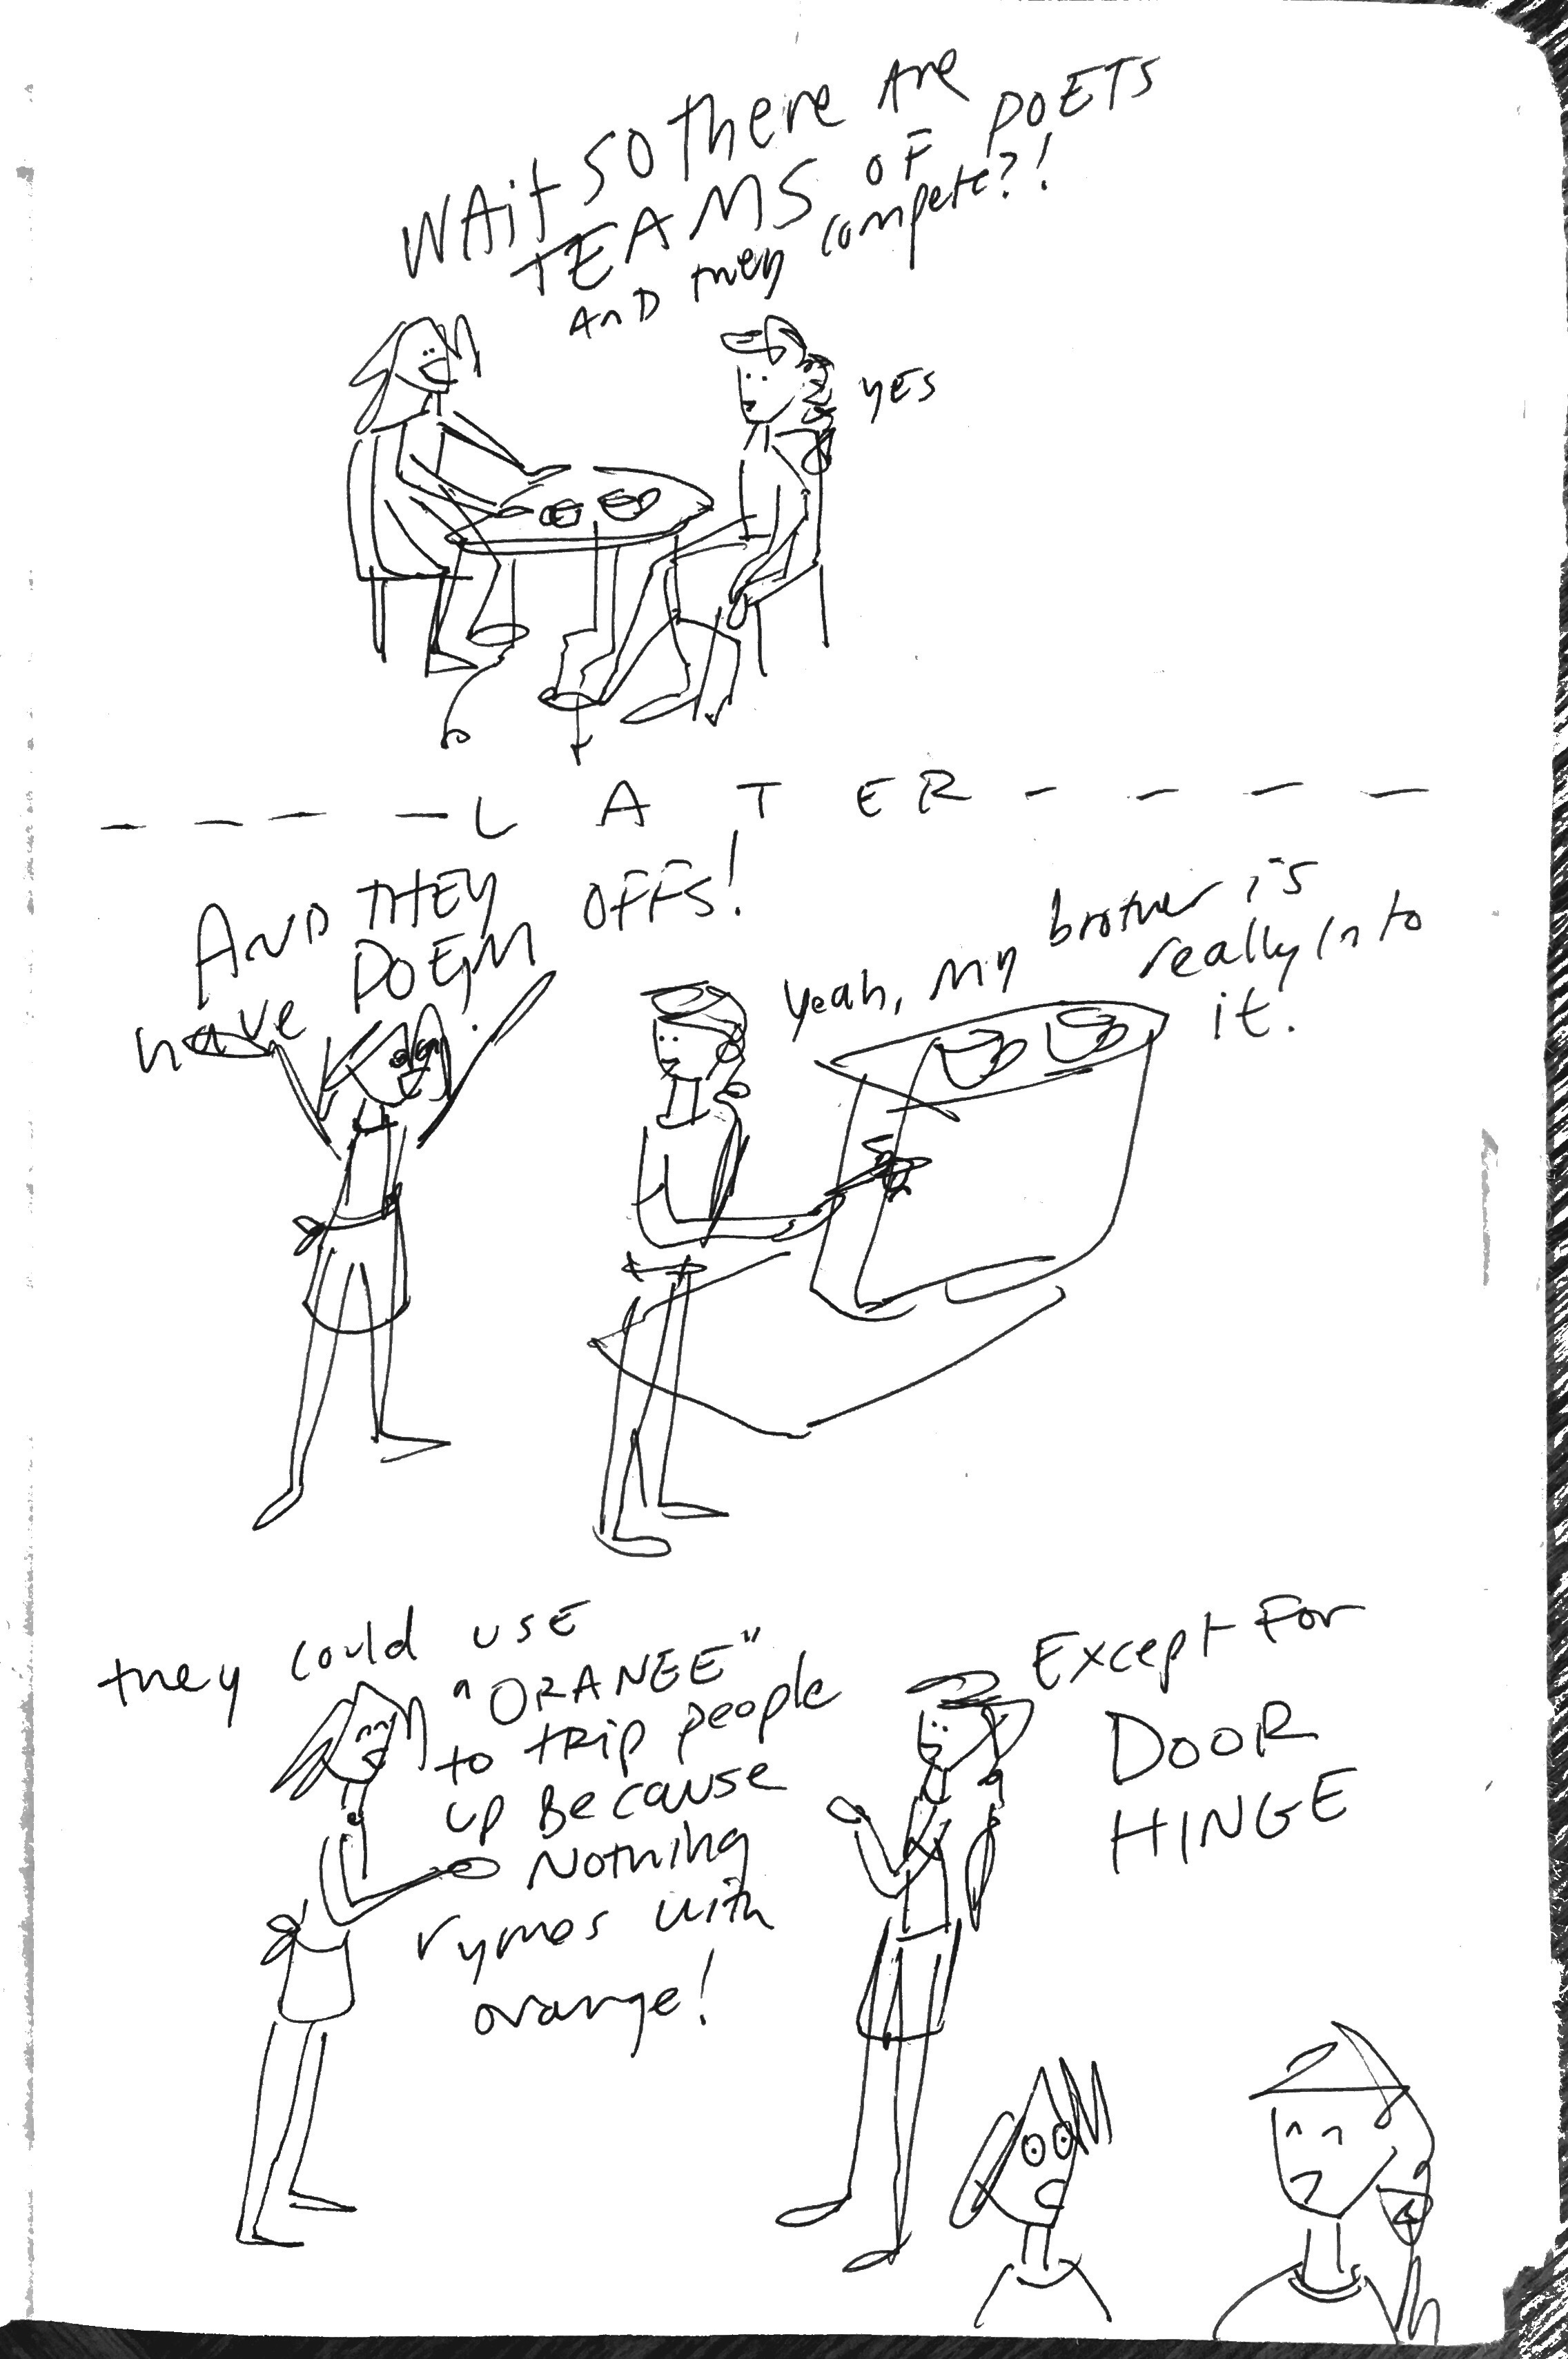 WAit SO there Are
TEAMS OF POETS
AnD they compete?!
YES
L A T E R
AND THEY
have POEM OFFS!
Yeah, My brother is
really into
it.
they could USE
"ORANEE"
to TRIP people
up BeCAUSE
Nothing
rymes with
orange!
Except For
DOOR
HINGE